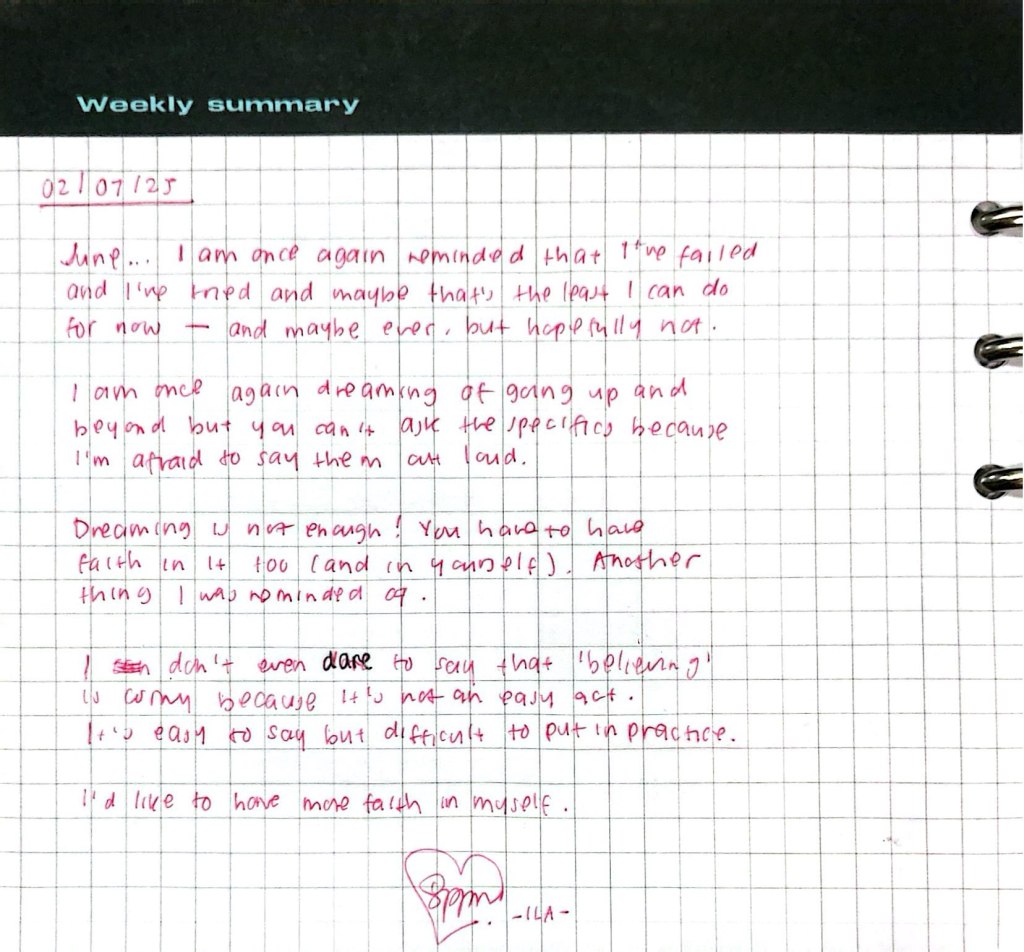 Weekly summary
02/07/25
June... I am once again reminded that I've failed
and I've tried and maybe that's the least I can do
for now — and maybe ever, but hopefully not.
I am once again dreaming of going up and
beyond but you can't ask the specifics because
I'm afraid to say them out loud.
Dreaming is not enough! You have to have
faith in it too (and in yourself). Another
thing I was reminded of.
I don't even dare to say that 'believing'
is corny because it's not an easy act.
It's easy to say but difficult to put in practice.
I'd like to have more faith in myself.
8ppm
-ILA-